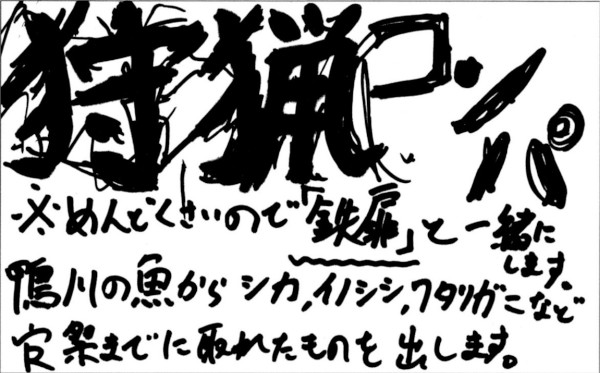 狩猟コンパ
※めんどくさいので「鉄扉」と一緒に
します。
鴨川の魚からシカ,イノシシ,ワタリガニなど
祭までに取れたものを出します。